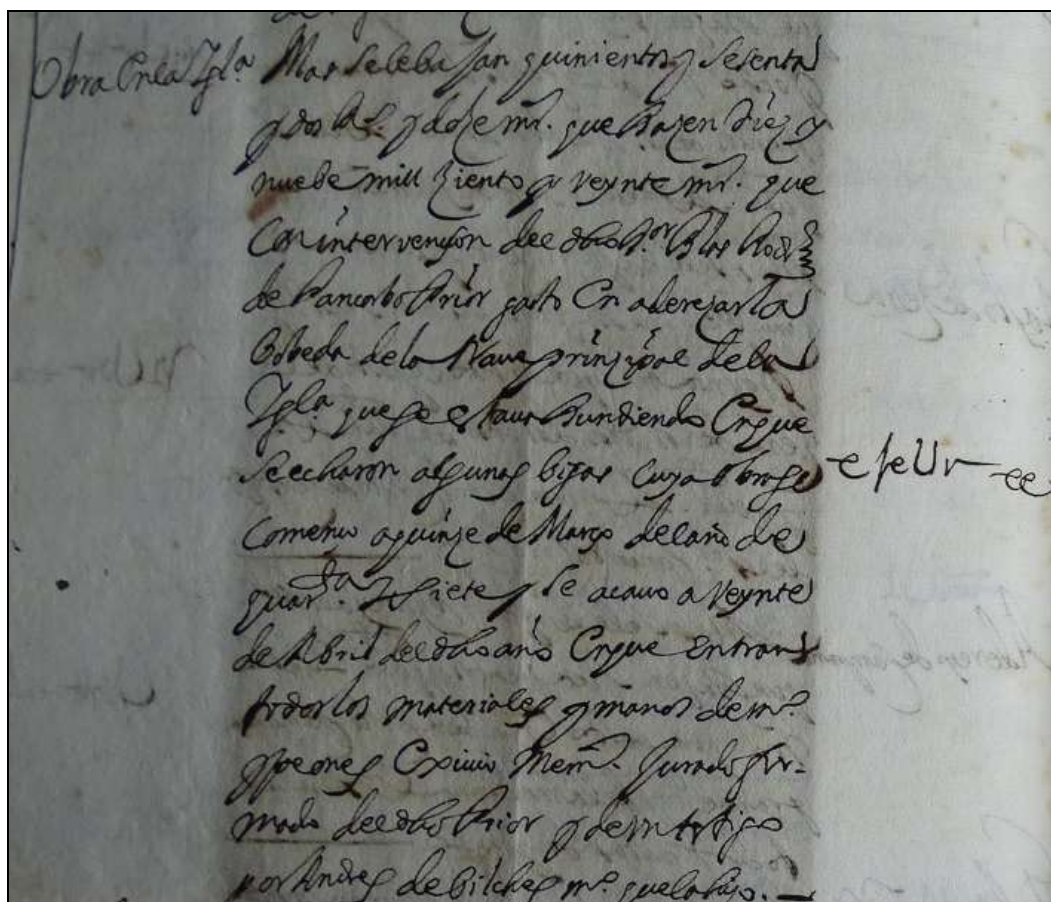 Obra En la Ygl.ª
Mas se le ba jan quinientos y sesenta
y dos R.s y doze mr. que hazen diez y
nuebe mill ziento y veynte mr. que
Con intervenzion del dho s.or Blas Rodr
de Pancorbo Prior gasto En aderezar la
Bobeda de la Nave prinzipal de la
Ygl.ª que se estaua hundiendo En que
se echaron algunas bigas cuya obra se
Comenzo a quinze de Março del año de
quar.ta y siete y se acauo a Veynte
de Abril del dho año En que entran
todos los materiales y manos de m.º
y peones Exiuio Mem.l Jurado y fir-
mado del dho Prior y de un testigo
por Andres de bilches m.º que la hizo. —